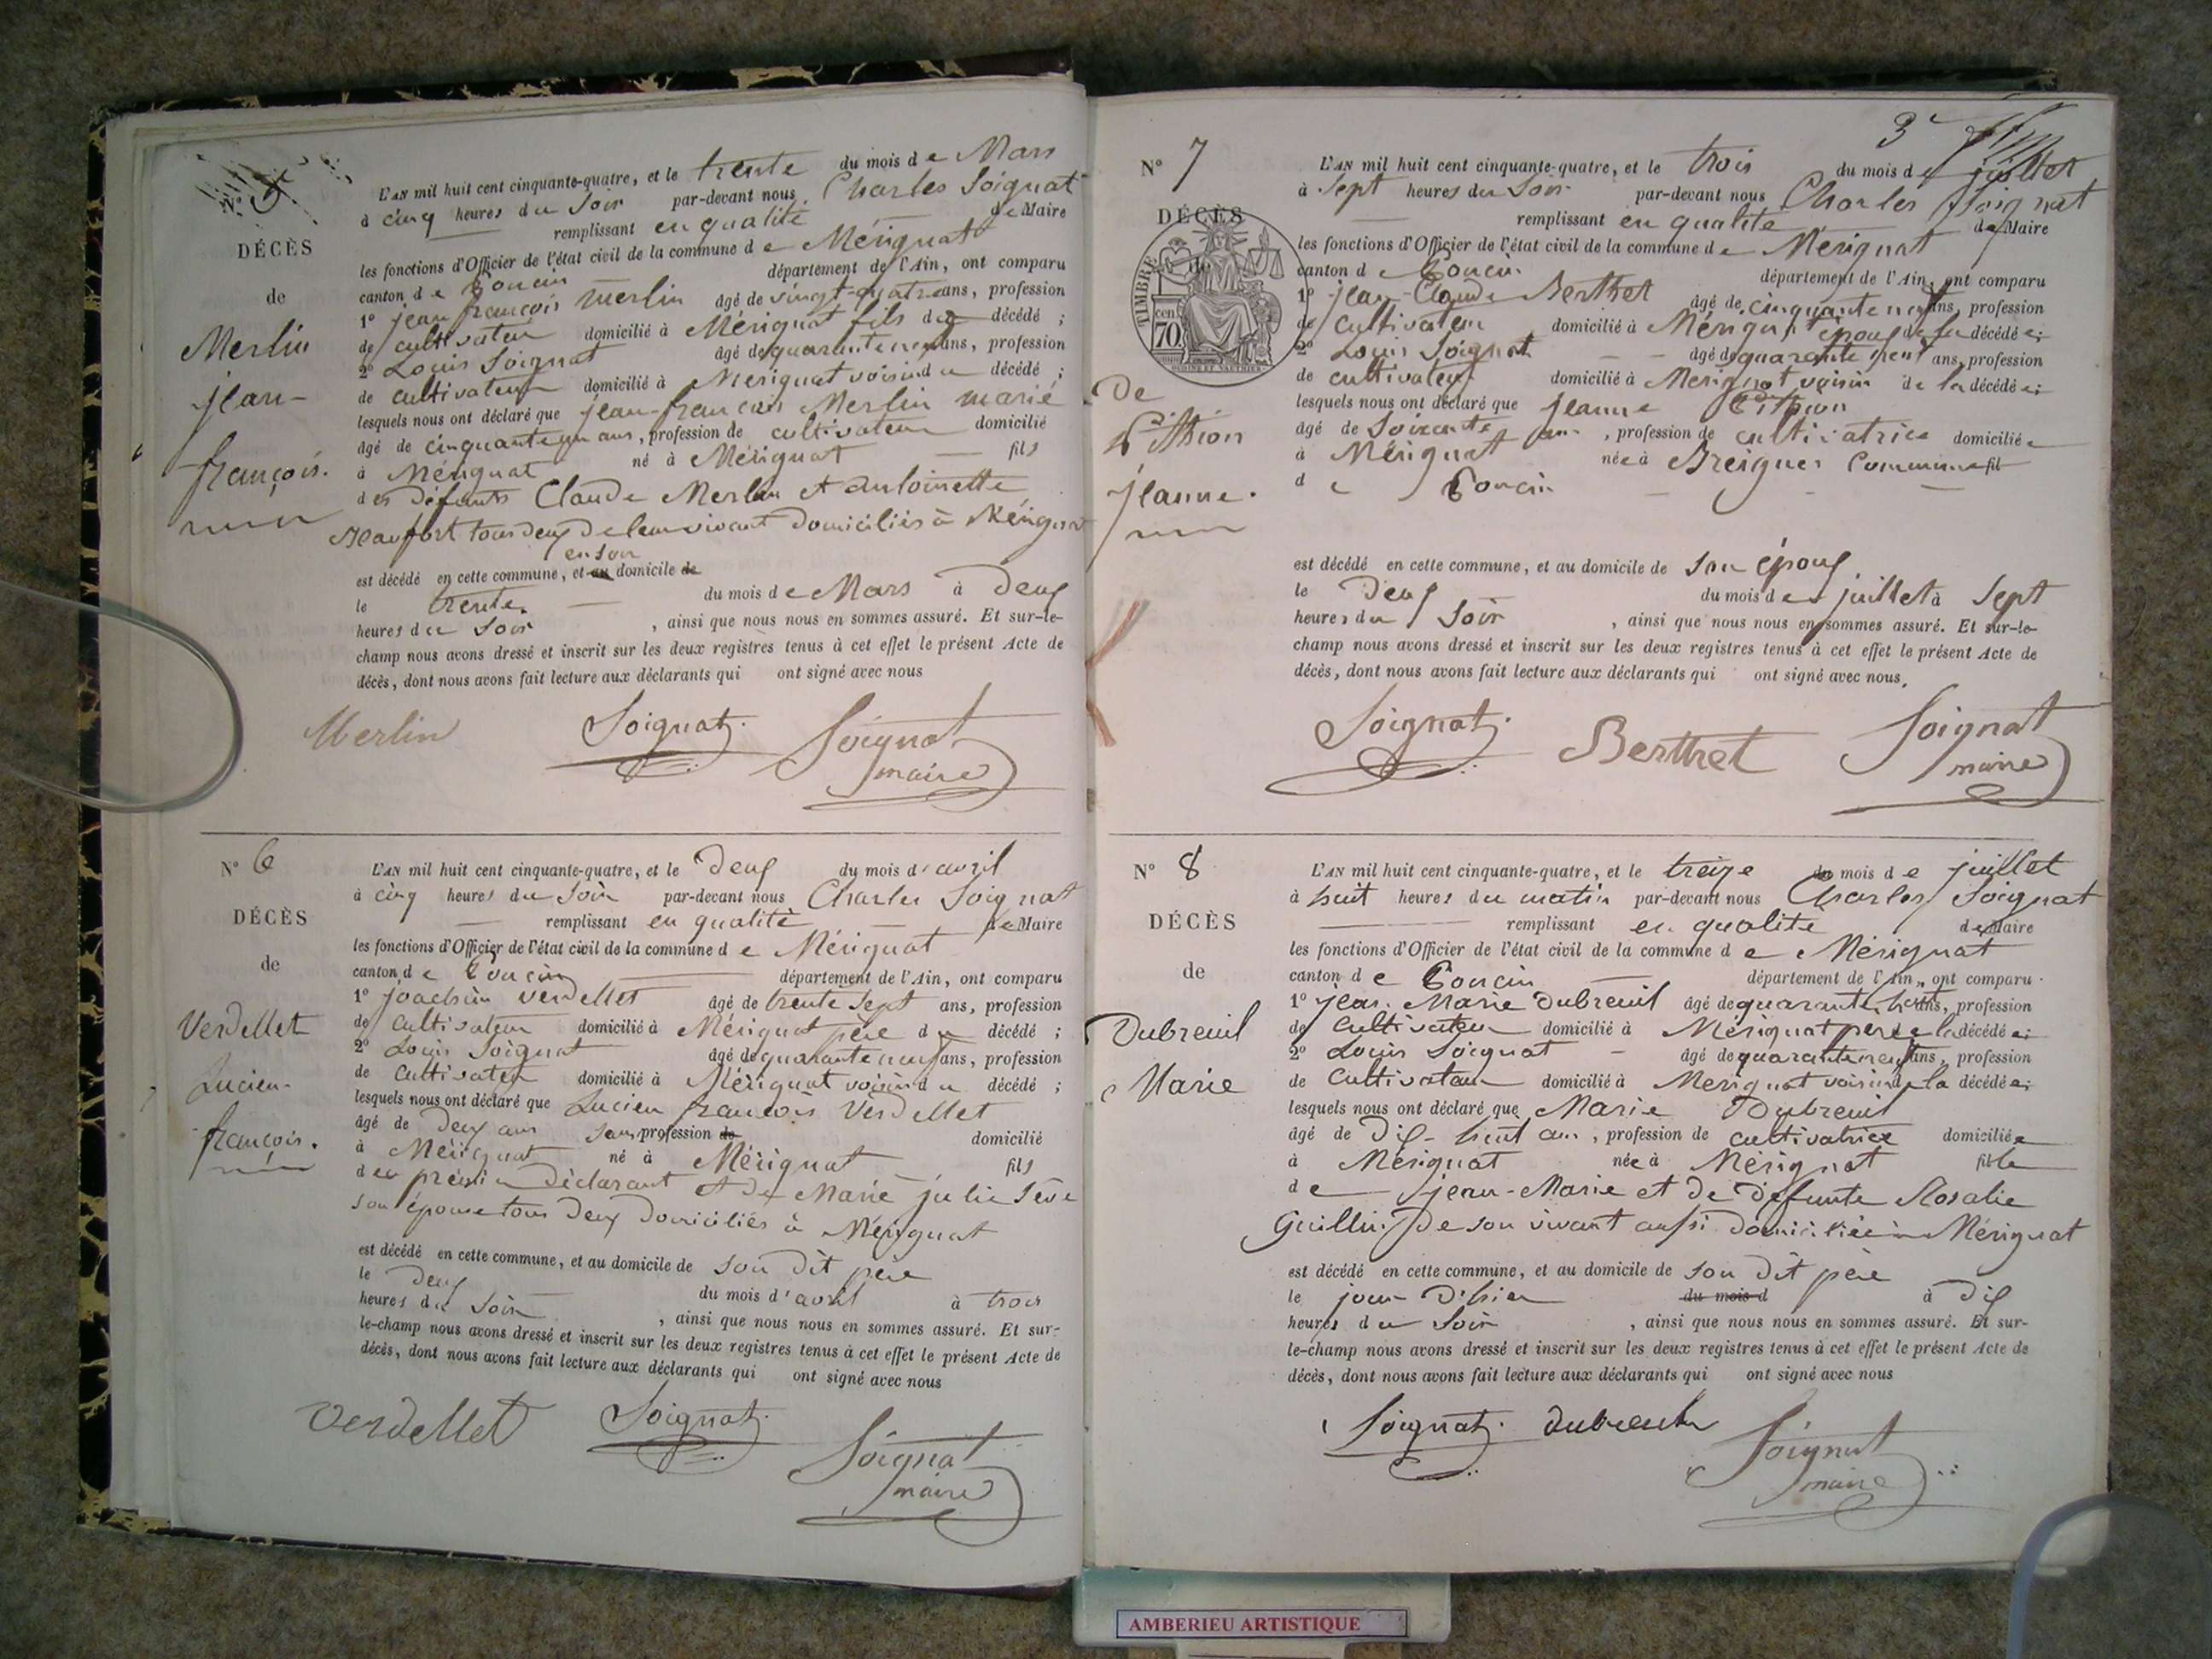 N° 5
DÉCÈS
de
Merlin
jean-
françois.
L'AN mil huit cent cinquante-quatre, et le trente du mois de Mars
à cinq heures du Soir par-devant nous Charles Soignat
remplissant en qualité de Maire
les fonctions d'Officier de l'état civil de la commune de Mérignat
canton de Poncin département de l'Ain, ont comparu
1° jean françois Merlin âgé de vingt-quatre ans, profession
de cultivateur domicilié à Mérignat fils du décédé ;
2° Louis Soignat âgé de quarante neuf ans, profession
de cultivateur domicilié à Merignat voisin du décédé ;
lesquels nous ont déclaré que jean-francois Merlin marié
âgé de cinquante un ans, profession de cultivateur domicilié
à Mérignat né à Mérignat fils
des défunts Claude Merlin et antoinette
Beaufort tous deux de leur vivant domiciliés à Mérignat
en son
est décédé en cette commune, et au domicile de
le trente du mois de Mars à deux
heures du Soir , ainsi que nous nous en sommes assuré. Et sur-le-
champ nous avons dressé et inscrit sur les deux registres tenus à cet effet le présent Acte de
décès, dont nous avons fait lecture aux déclarants qui ont signé avec nous
Merlin Soignat. Soignat
maire
N° 6
DÉCÈS
de
Verdellet
Lucien-
françois.
L'AN mil huit cent cinquante-quatre, et le deux du mois d'avril
à cinq heures du Soir par-devant nous Charles Soignat
remplissant en qualité de Maire
les fonctions d'Officier de l'état civil de la commune de Mérignat
canton de Poncin département de l'Ain, ont comparu
1° joachim Verdellet âgé de trente sept ans, profession
de cultivateur domicilié à Mérignat père du décédé ;
2° Louis Soignat âgé de quarante neuf ans, profession
de cultivateur domicilié à Mérignat voisin du décédé ;
lesquels nous ont déclaré que Lucien françois Verdellet
âgé de deux ans sans profession de domicilié
à Mérignat né à Mérignat fils
du premier déclarant et de Marie julie Sève
son épouse tous deux domiciliés à Mérignat
est décédé en cette commune, et au domicile de son dit père
le deux du mois d'avril à trois
heures du Soir , ainsi que nous nous en sommes assuré. Et sur-
le-champ nous avons dressé et inscrit sur les deux registres tenus à cet effet le présent Acte de
décès, dont nous avons fait lecture aux déclarants qui ont signé avec nous
Verdellet Soignat. Soignat
maire
3e
N° 7
DÉCÈS
TIMBRE
cent
70
De
Jeanne.
L'AN mil huit cent cinquante-quatre, et le trois du mois de juillet
à Sept heures du Soir par-devant nous Charles Soignat
remplissant en qualité de Maire
les fonctions d'Officier de l'état civil de la commune de Mérignat
canton de Poncin département de l'Ain, ont comparu
1° jean-Claude Berthet âgé de cinquante neuf ans, profession
de cultivateur domicilié à Mérignat époux de la décédée ;
2° Louis Soignat âgé de quarante neuf ans, profession
de cultivateur domicilié à Merignat voisin de la décédée ;
lesquels nous ont déclaré que Jeanne
âgé de Soixante ans, profession de cultivatrice domiciliée
à Mérignat née à Breignes Commune fil
de Poncin
est décédé en cette commune, et au domicile de son époux
le deux du mois de juillet à Sept
heures du Soir , ainsi que nous nous en sommes assuré. Et sur-le-
champ nous avons dressé et inscrit sur les deux registres tenus à cet effet le présent Acte de
décès, dont nous avons fait lecture aux déclarants qui ont signé avec nous.
Soignat. Berthet Soignat
maire
N° 8
DÉCÈS
de
Dubreuil
Marie
L'AN mil huit cent cinquante-quatre, et le treize du mois de juillet
à huit heures du matin par-devant nous Charles Soignat
remplissant en qualité de Maire
les fonctions d'Officier de l'état civil de la commune de Mérignat
canton de Poncin département de l'Ain, ont comparu
1° jean-Marie Dubreuil âgé de quarante huit ans, profession
de cultivateur domicilié à Mérignat père de la décédée ;
2° Louis Soignat âgé de quarante neuf ans, profession
de cultivateur domicilié à Merignat voisin de la décédée ;
lesquels nous ont déclaré que Marie Dubreuil
âgé de dix-huit ans, profession de cultivatrice domiciliée
à Mérignat née à Mérignat fille
de jean-Marie et de défunte Rosalie
Guillin de son vivant aussi domiciliée à Mérignat
est décédé en cette commune, et au domicile de son dit père
le jour d'hier du mois d à dix
heures du Soir , ainsi que nous nous en sommes assuré. Et sur-
le-champ nous avons dressé et inscrit sur les deux registres tenus à cet effet le présent Acte de
décès, dont nous avons fait lecture aux déclarants qui ont signé avec nous
Soignat. dubreuil Soignat
maire
AMBERIEU ARTISTIQUE